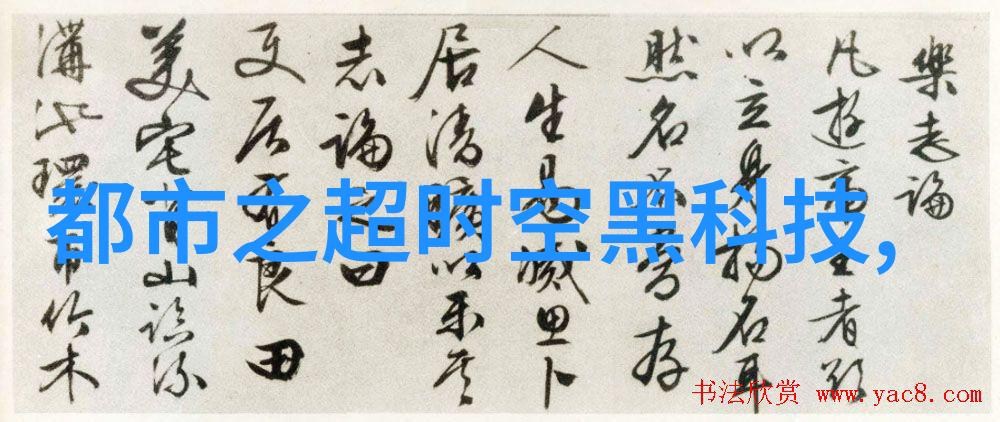 樂志論
凡遊帝王者欲
以立身揚名耳
然名不常存
人生易滅思卜
居清曠以樂其
志論之曰
使居有良田
美宅背山臨流
溝池環帀竹木
都市之超时空黑科技,
书法欣赏 www.yac8.com